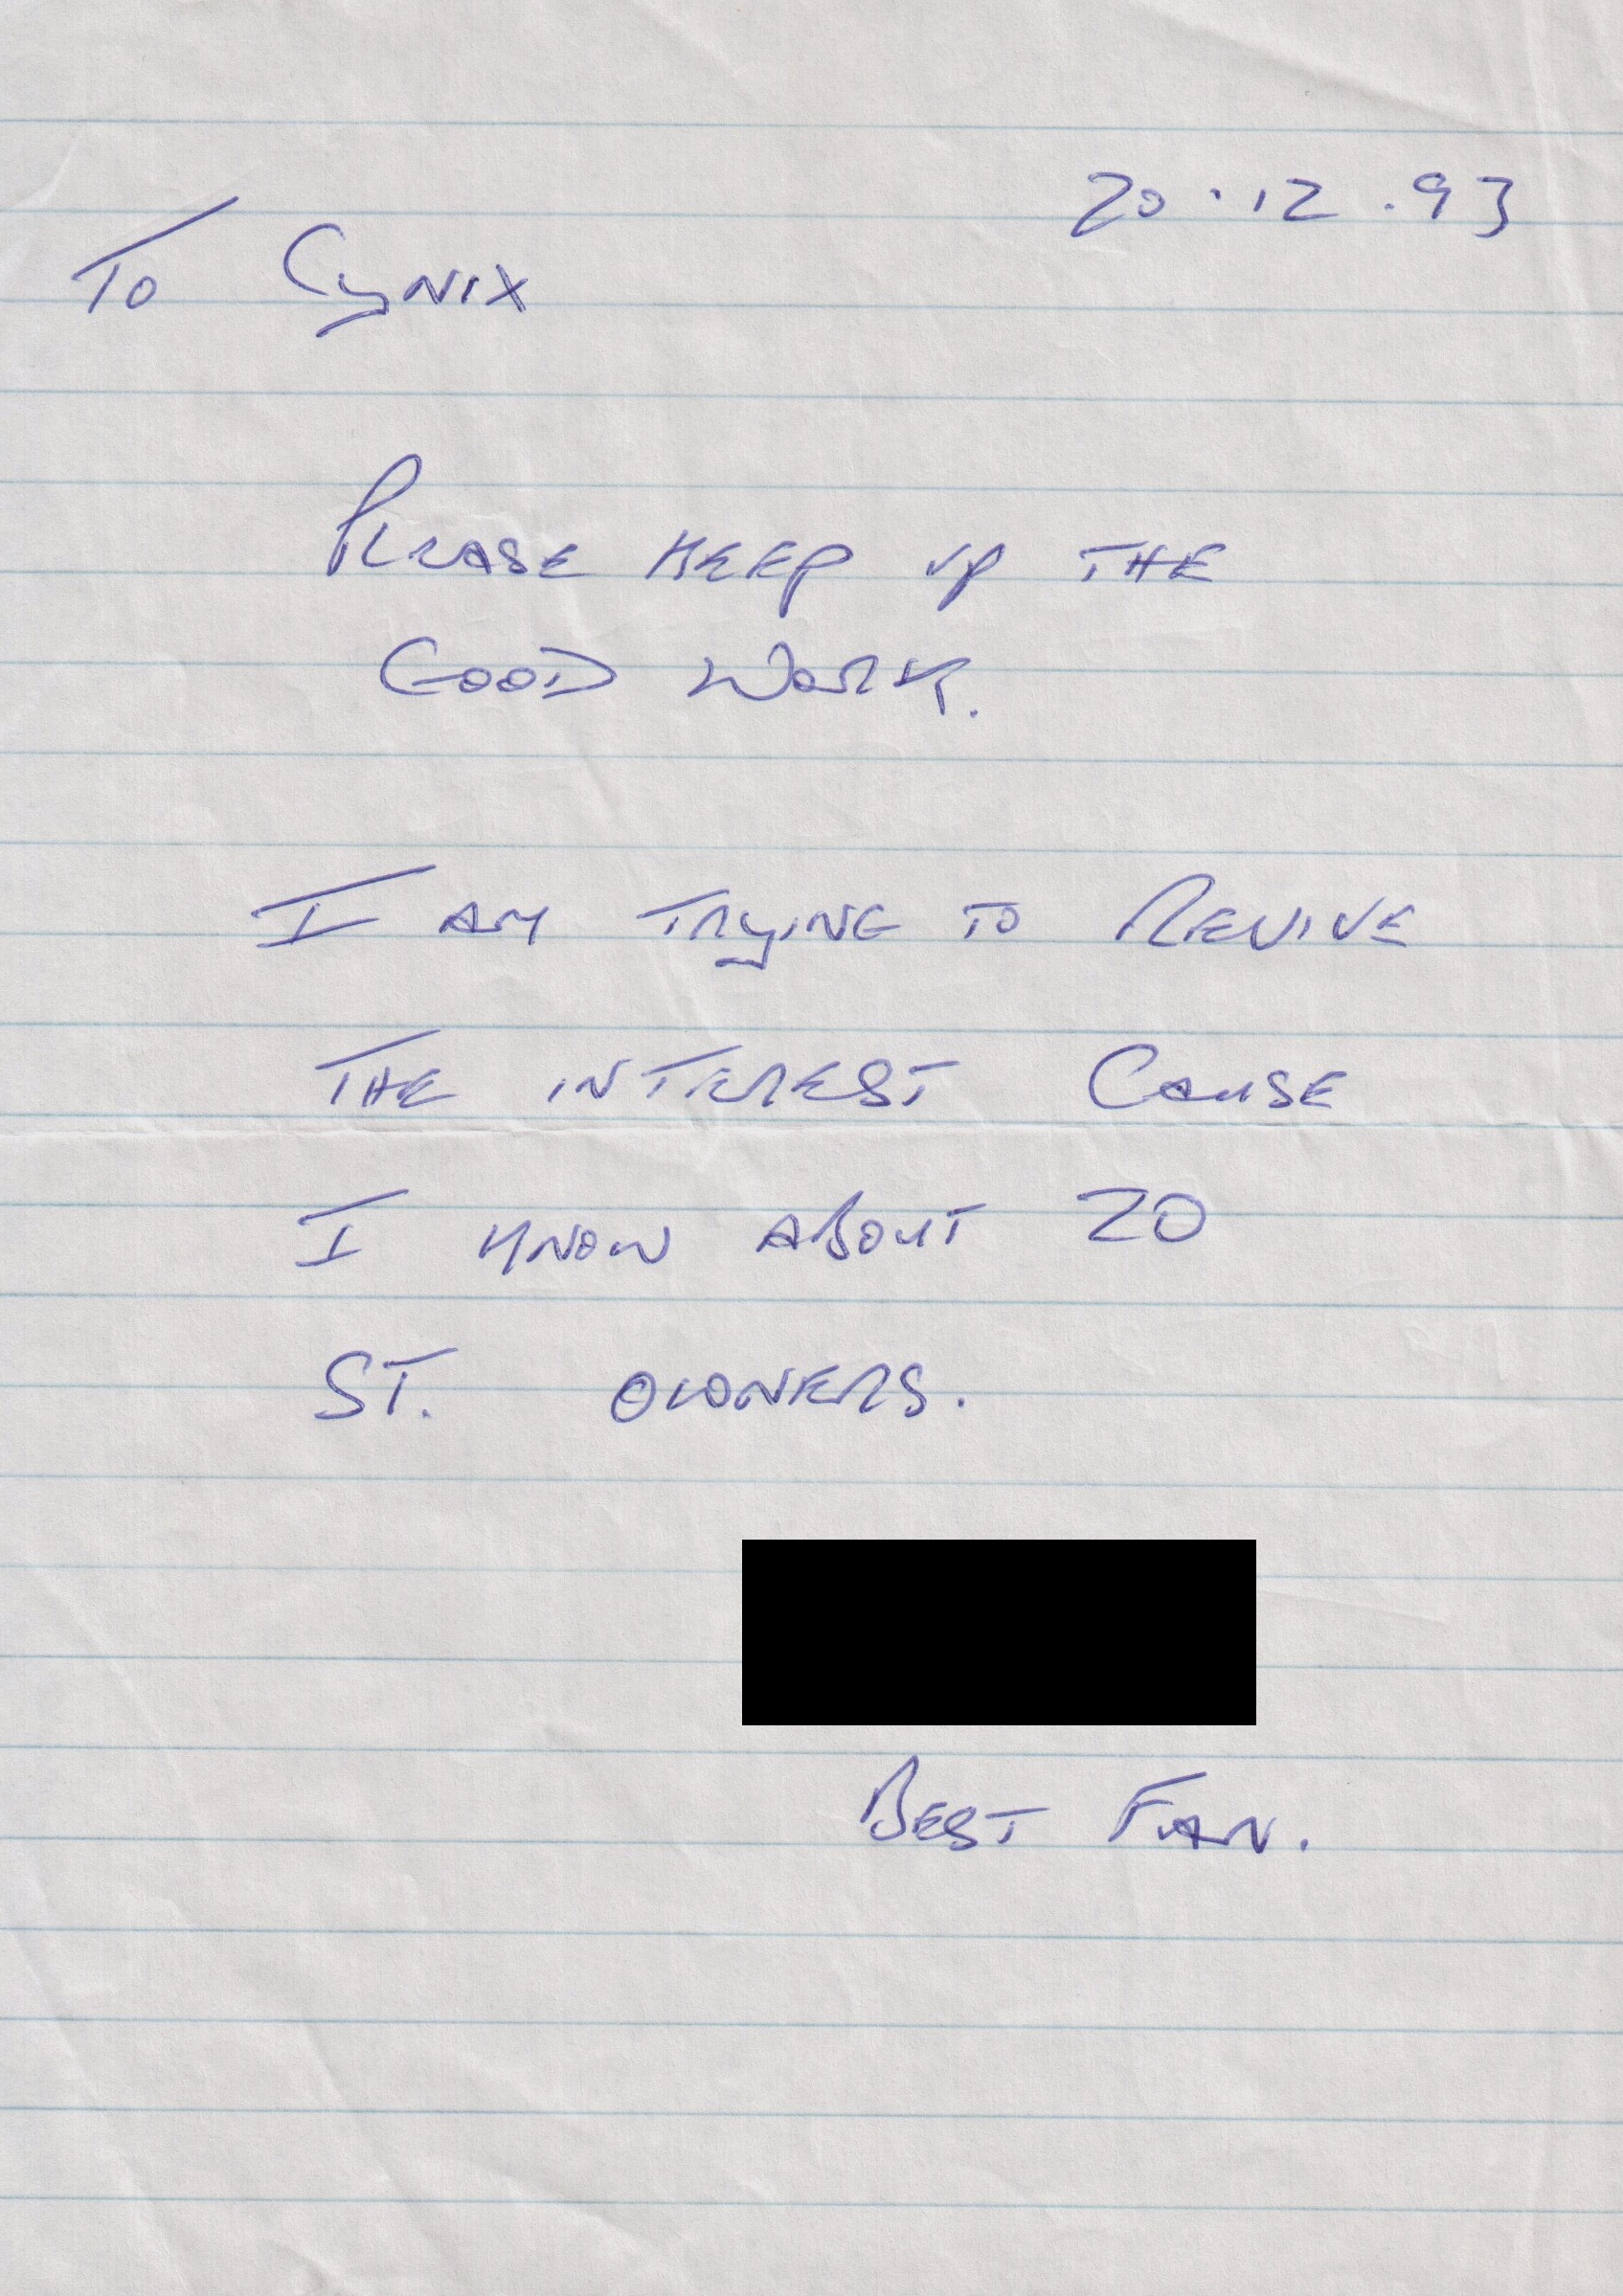 20.12.93
To Cynix
PLEASE KEEP UP THE
GOOD WORK.
I AM TRYING TO REVIVE
THE INTEREST CAUSE
I KNOW ABOUT 20
ST. OWNERS.
BEST FAN.